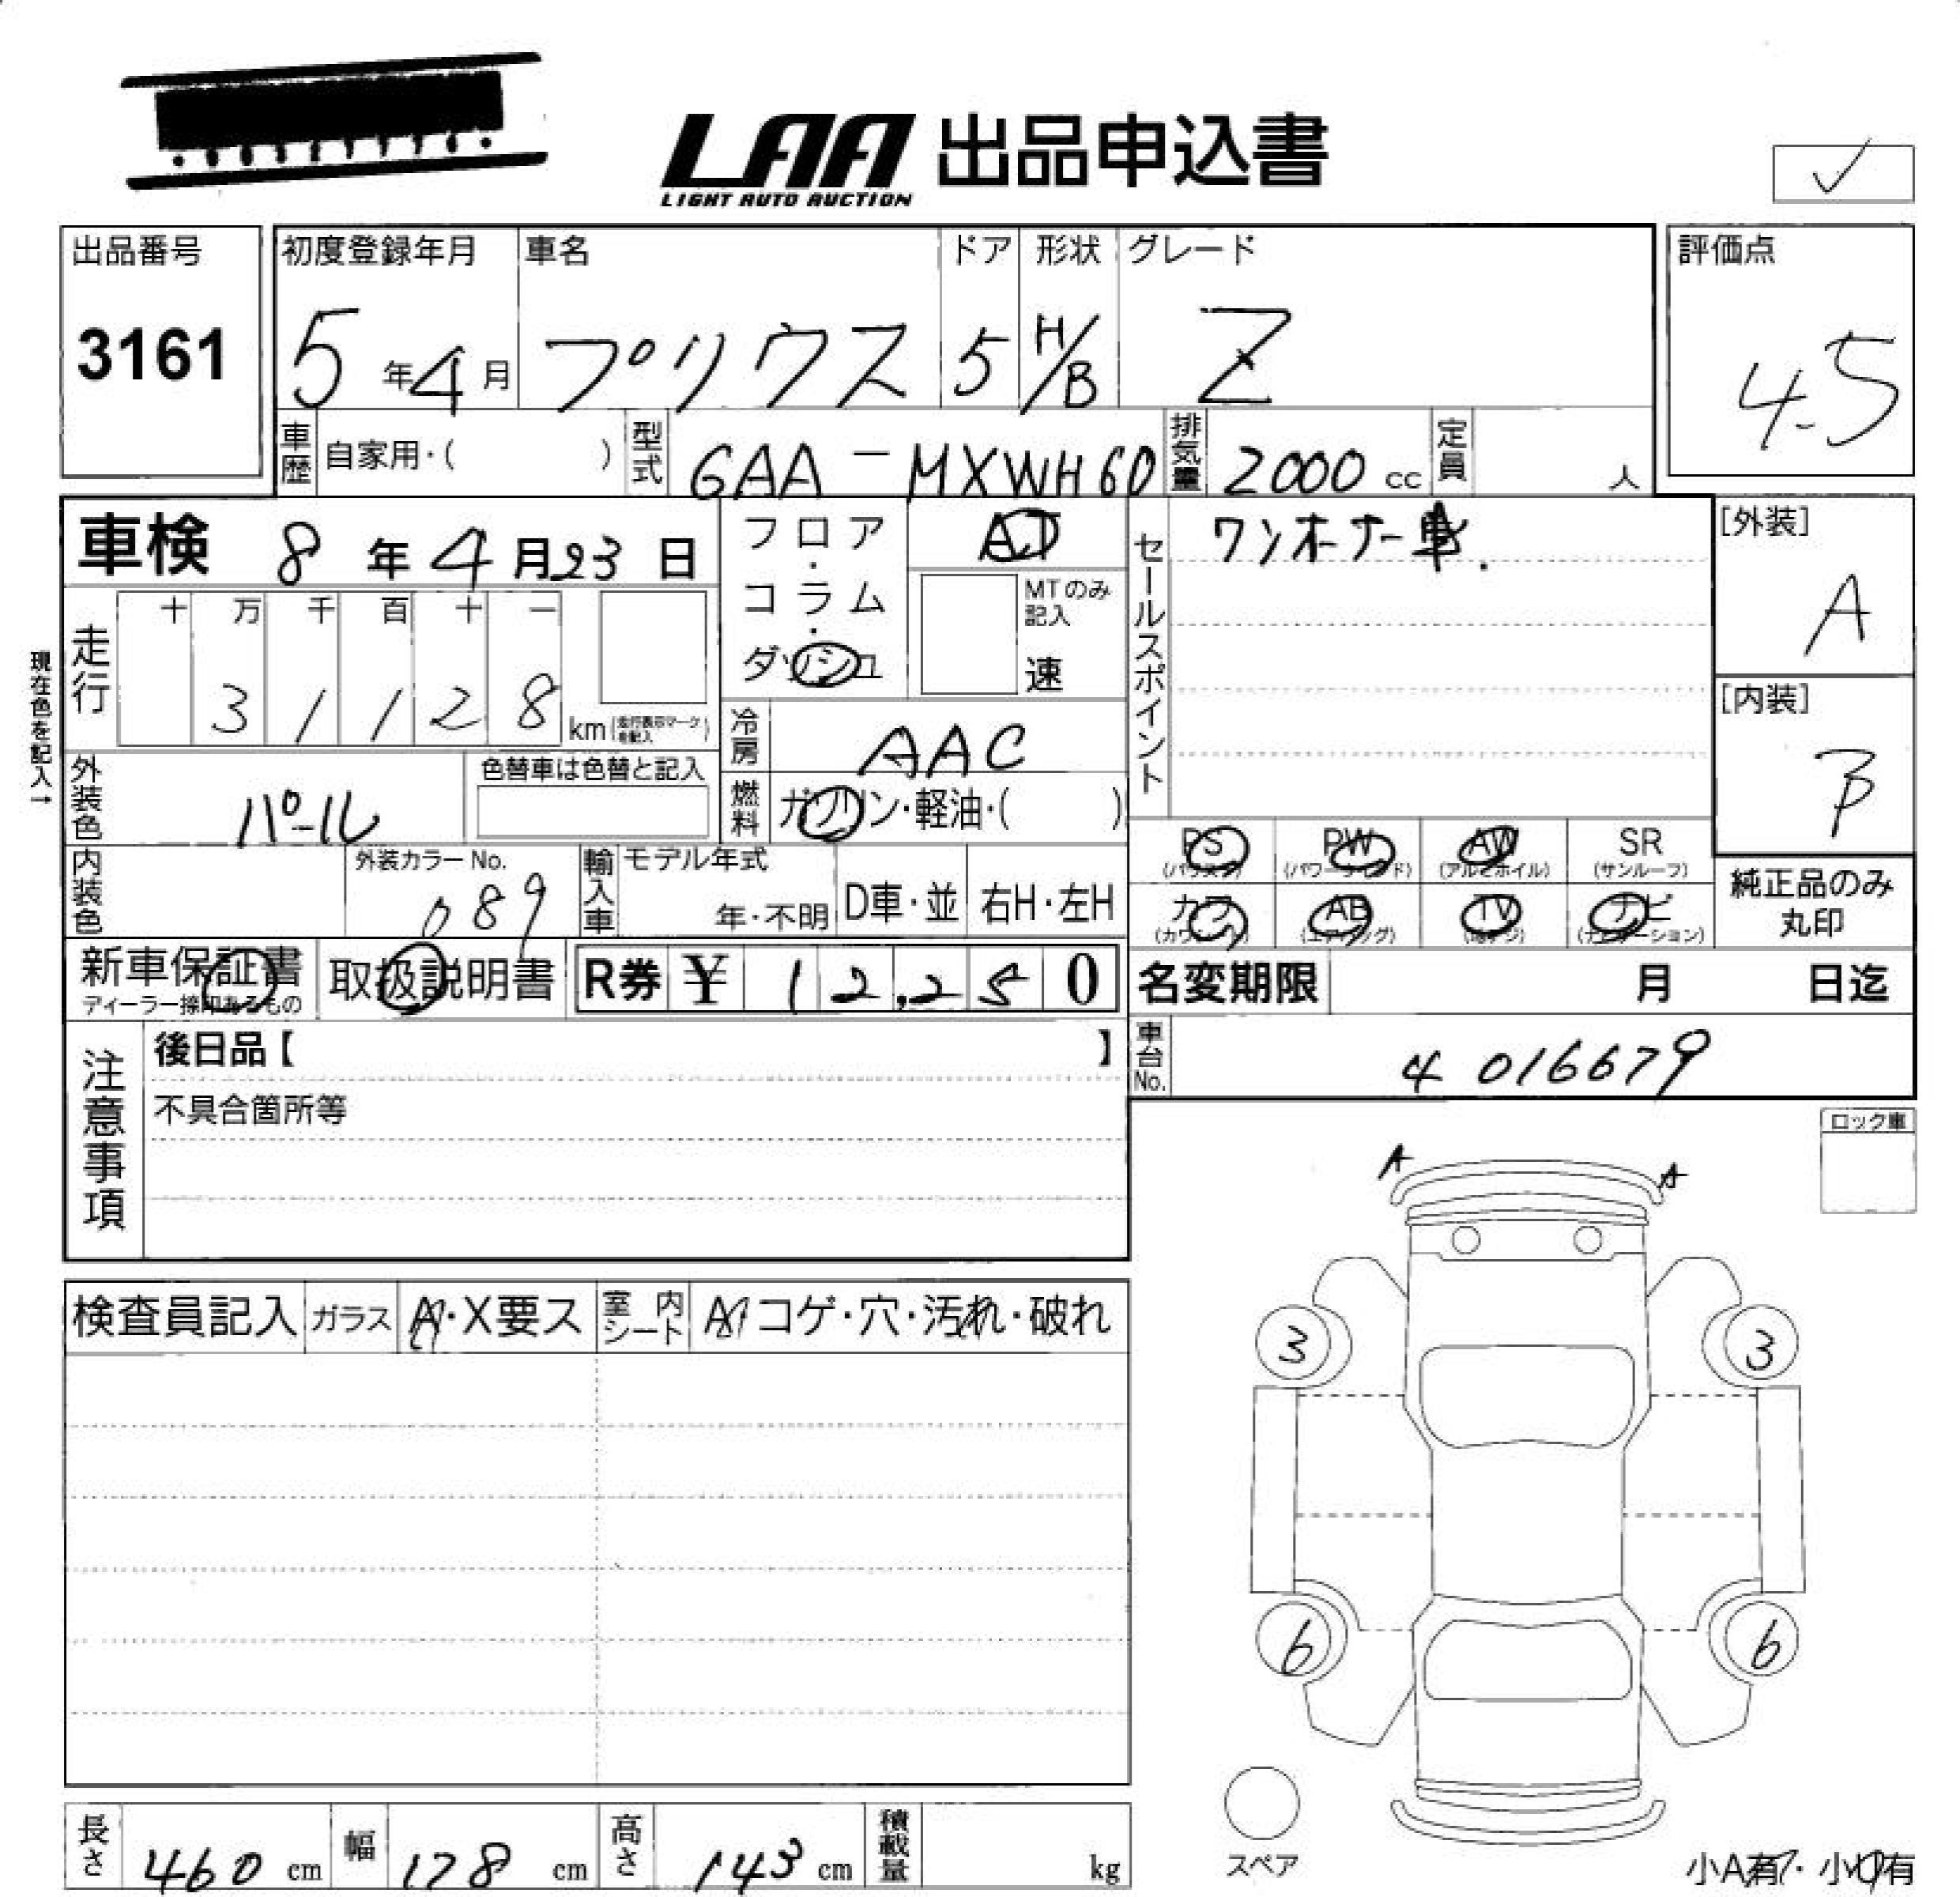 LAA 出品申込書
LIGHT AUTO AUCTION
出品番号
3161
初度登録年月
5年4月
車名
プリウス
ドア
5
形状
H/B
グレード
Z
評価点
4.5
車歴 自家用・( )
型式 6AA-MXWH60
排気量 2000 cc
定員 人
車検 8年4月23日
フロア・コラム・ダッシュ
AT
MTのみ記入
速
セールスポイント
ワンオーナー車.
[外装]
A
[内装]
B
現在色を記入→
走行
十 万 千 百 十 一
3 1 1 2 8 km(走行表示マークを記入)
冷房 AAC
外装色 パール
色替車は色替と記入
燃料 ガソリン・軽油・( )
PS (パワステ)
PW (パワーウィンド)
AW (アルミホイル)
SR (サンルーフ)
カワ (カワシート)
AB (エアバッグ)
TV (地デジ)
ナビ (ナビゲーション)
純正品のみ丸印
内装色
外装カラーNo.
089
輸入車
モデル年式
年・不明
D車・並
右H・左H
新車保証書
ディーラー捺印あるもの
取扱説明書
R券 ¥ 12,250
名変期限 月 日迄
車台No. 4 016679
注意事項
後日品【 】
不具合箇所等
ロック車
A A
検査員記入
ガラス A・X要ス
室内シート A コゲ・穴・汚れ・破れ
3 3
6 6
スペア
小A有・小U有
長さ 460 cm
幅 178 cm
高さ 143 cm
積載量 kg